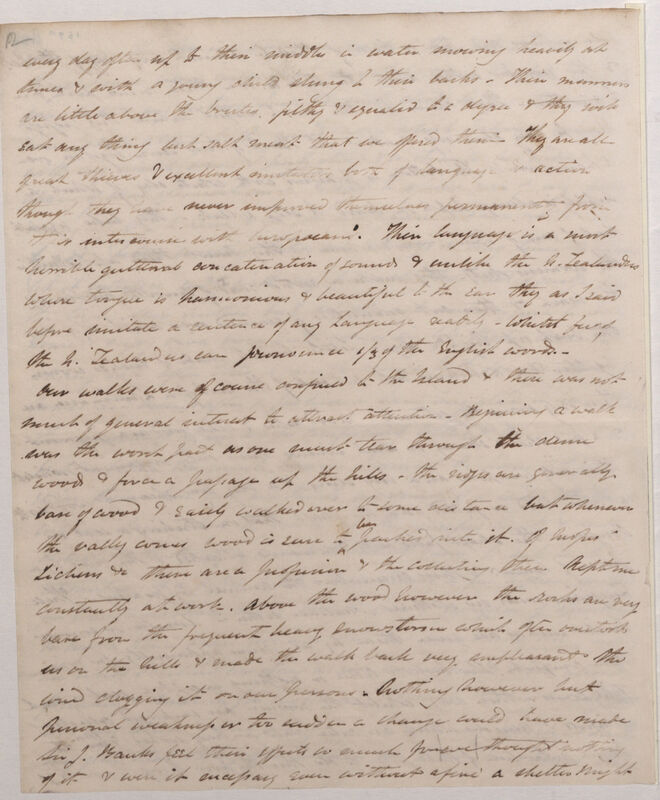 12
every day often up to their middle in water snowing heavily at
times & with a young child slung to their backs. Their manners
are little above the brutes, filthy & squalid to a degree & they will
Eat any thing but salt meat that we offered them. They are all
great thieves & excellent imitators both of language & action
though they have never improved themselves permanently from
intercourse with Europeans. Their language is a most
horrible guttural concatenation of sounds & unlike the N. Zealanders
whose tongue is harmonious & beautiful to the Ear they as I said
before imitate a sentence of any Language readily - Whilst few of
the N. Zealanders can pronounce 1/3 of the English words.-
Our walks were of course confined to the Island & there was not
much of general interest to attract attention - Beginning a walk
was the worst part as one must tear through the dense
wood & force a passage up the hills - the ridges are generally
bare of wood & easily walked over to some distance but whenever
the vally comes wood is sure to have pushed into it. Of Mosses
Lichens &c there are a profusion & the collecting them kept me
constantly at work. Above the wood however the rocks are very
bare from the frequent heavy snowstorms which often overtook
us on the hills & made the walk back very unpleasant the
wind clogging it on our persons. Nothing however but
personal weakness or too sudden a change could have made
Sir J. Banks feel their effects so much for we thought nothing
of it & were it necessary even without a fire a shelter might